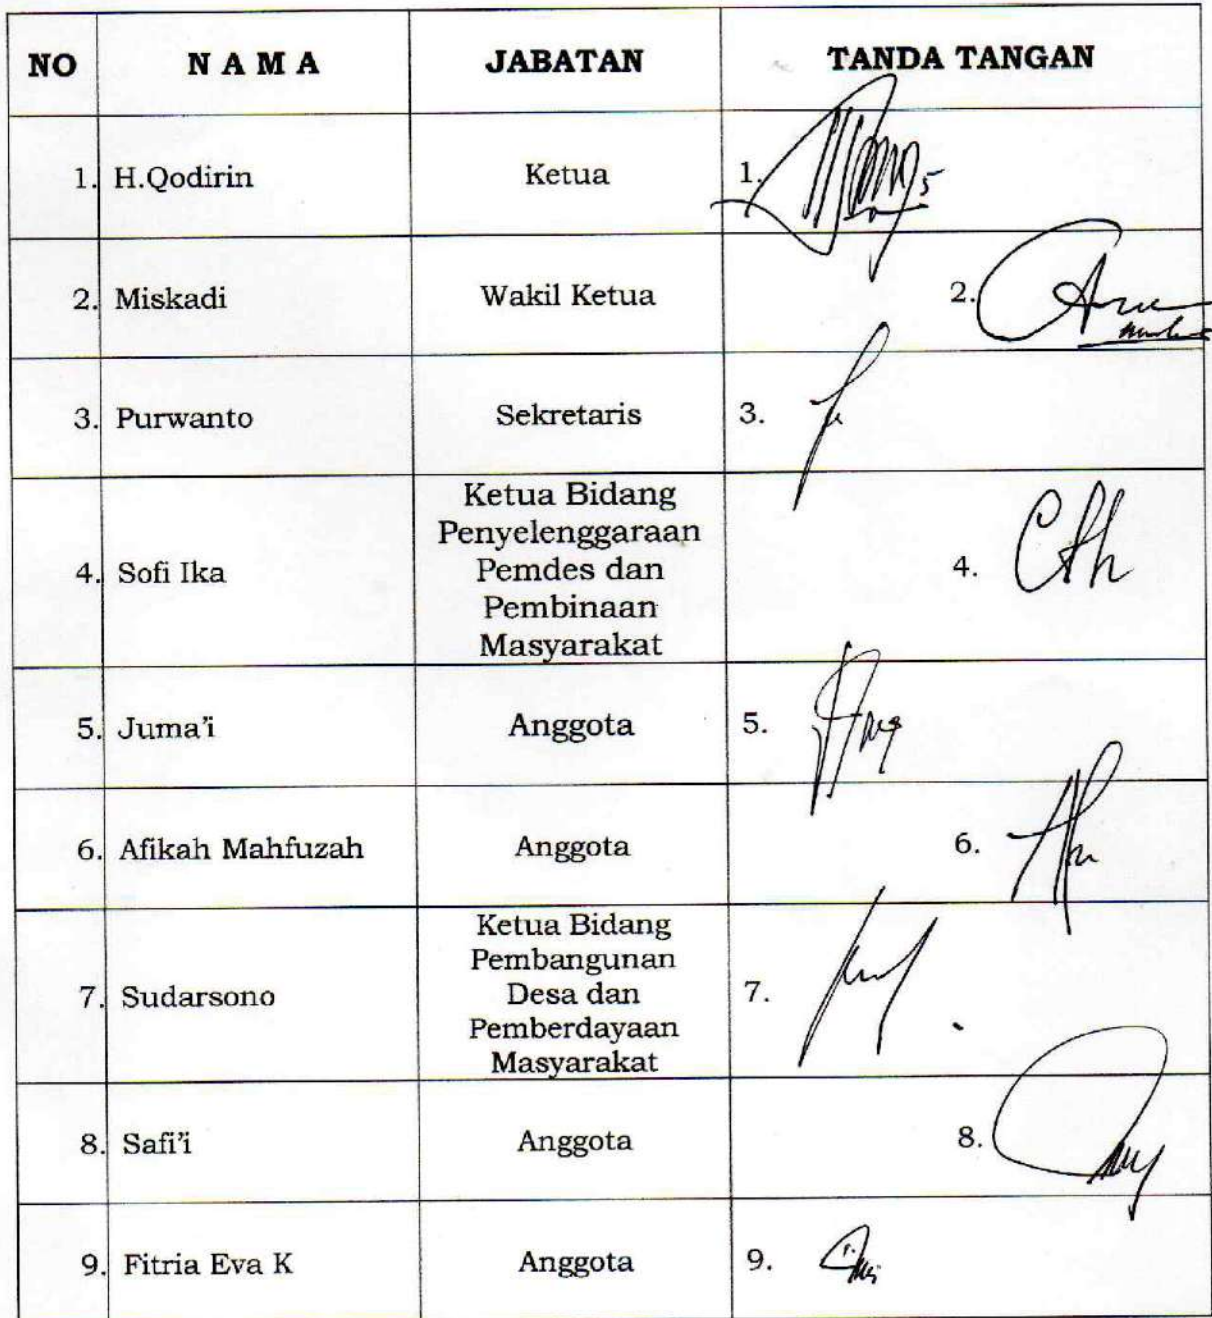 NO N A M A JABATAN TANDA TANGAN
1. H.Qodirin Ketua 1.
2. Miskadi Wakil Ketua 2.
3. Purwanto Sekretaris 3.
Ketua Bidang
Penyelenggaraan
4. Sofi Ika Pemdes dan 4.
Pembinaan
Masyarakat
5. Juma'i Anggota 5.
6. Afikah Mahfuzah Anggota 6.
Ketua Bidang
Pembangunan
7. Sudarsono Desa dan 7.
Pemberdayaan
Masyarakat
8. Safi'i Anggota 8.
9. Fitria Eva K Anggota 9.